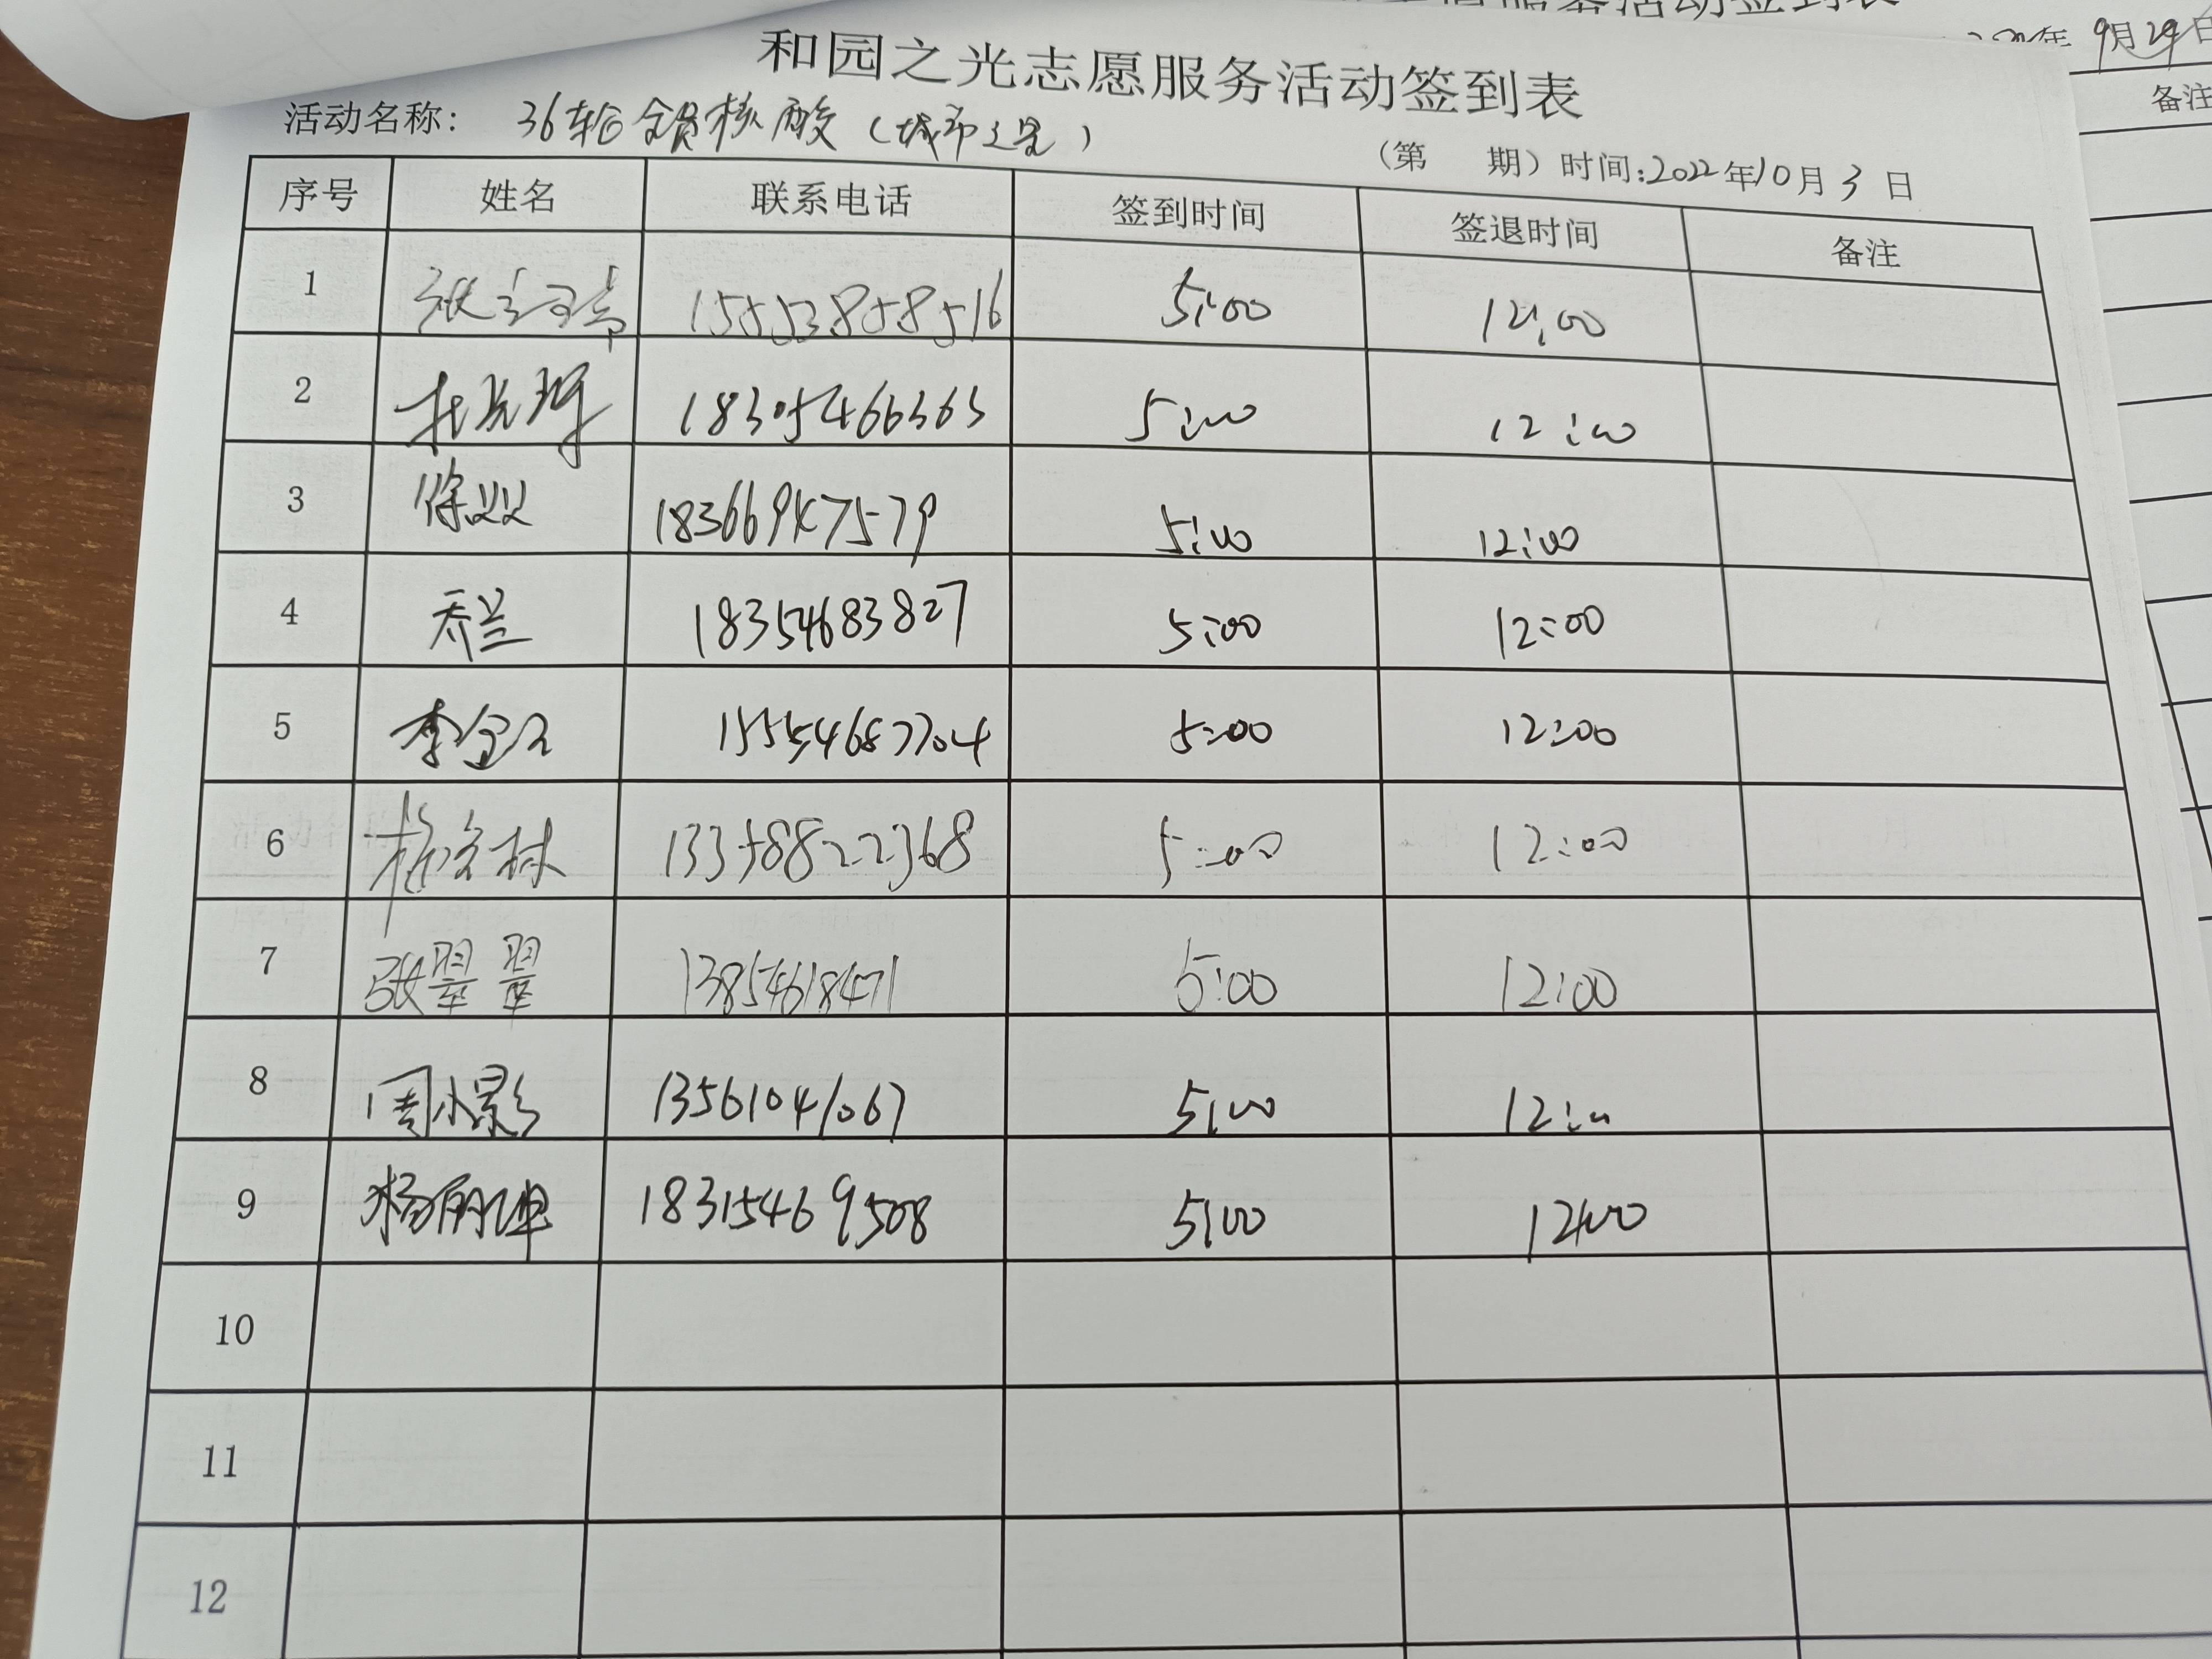 服务活动签到表
年 9月29日
备注
和园之光志愿服务活动签到表
活动名称: 36轮全员核酸（城市之星）
（第 期）时间:2022年10月3日
序号 姓名 联系电话 签到时间 签退时间 备注
1 15553858516 5:00 12:00
2 18305466363 5:00 12:00
3 徐双双 18366947579 5:00 12:00
4 乔兰 18354683827 5:00 12:00
5 李 15554687704 5:00 12:00
6 13358822368 5:00 12:00
7 张翠翠 13854618471 5:00 12:00
8 周小影 13561041067 5:00 12:00
9 杨丽坤 18315469508 5:00 12:00
10
11
12